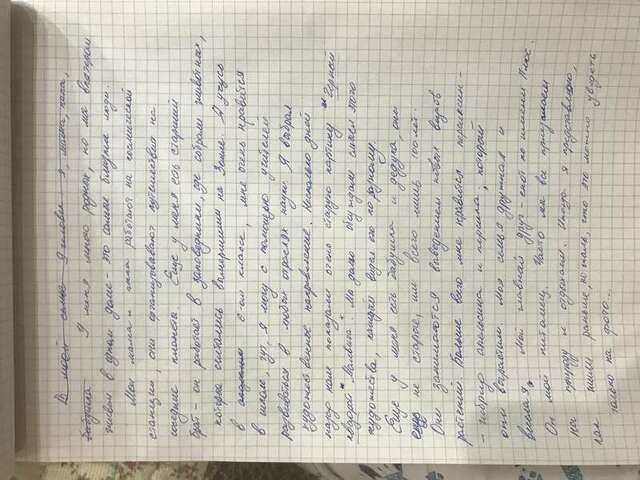 В моей семье 9 человек я, мама, папа,
бабушка У меня много родных, но мы вчетвером
живём в одном доме - это самые близкие люди.
Мои мама и папа работают на космической
станции, они организовывают путешествия на
соседние планеты. Еще у меня есть старший
брат - он работает в заповеднике, где собраны животные,
которые считались вымершими на Земле. А учусь
в с-ом классе, мне очень нравится
в школе, тут, я могу с помощью учителем
развиваться в любой отраслях науки. Я выбрал
художественное направление. Несколько дней
назад нам показали очень старую картину "Черный
квадрат" Малвича". Мы долго обсуждали смысл этого
художества, каждый видел его по разному.
Еще у меня есть бабушка и дедула, они
еще не старые, им всего лишь 100 лет.
Они занимаются выведением новых видов
растений. Больше всего мне нравится персиксин -
- гибрид апельсина и персика, который
они вырастили. Моя семья дружная и
веселая, Мой главный друг - скот по имени Плюс.
Он мой питомец. Часто мы все приезжаем
на природу и отдыхаем. Иногда я представляю,
как жили раньше, но жаль, что это можно увидеть
только на фото...